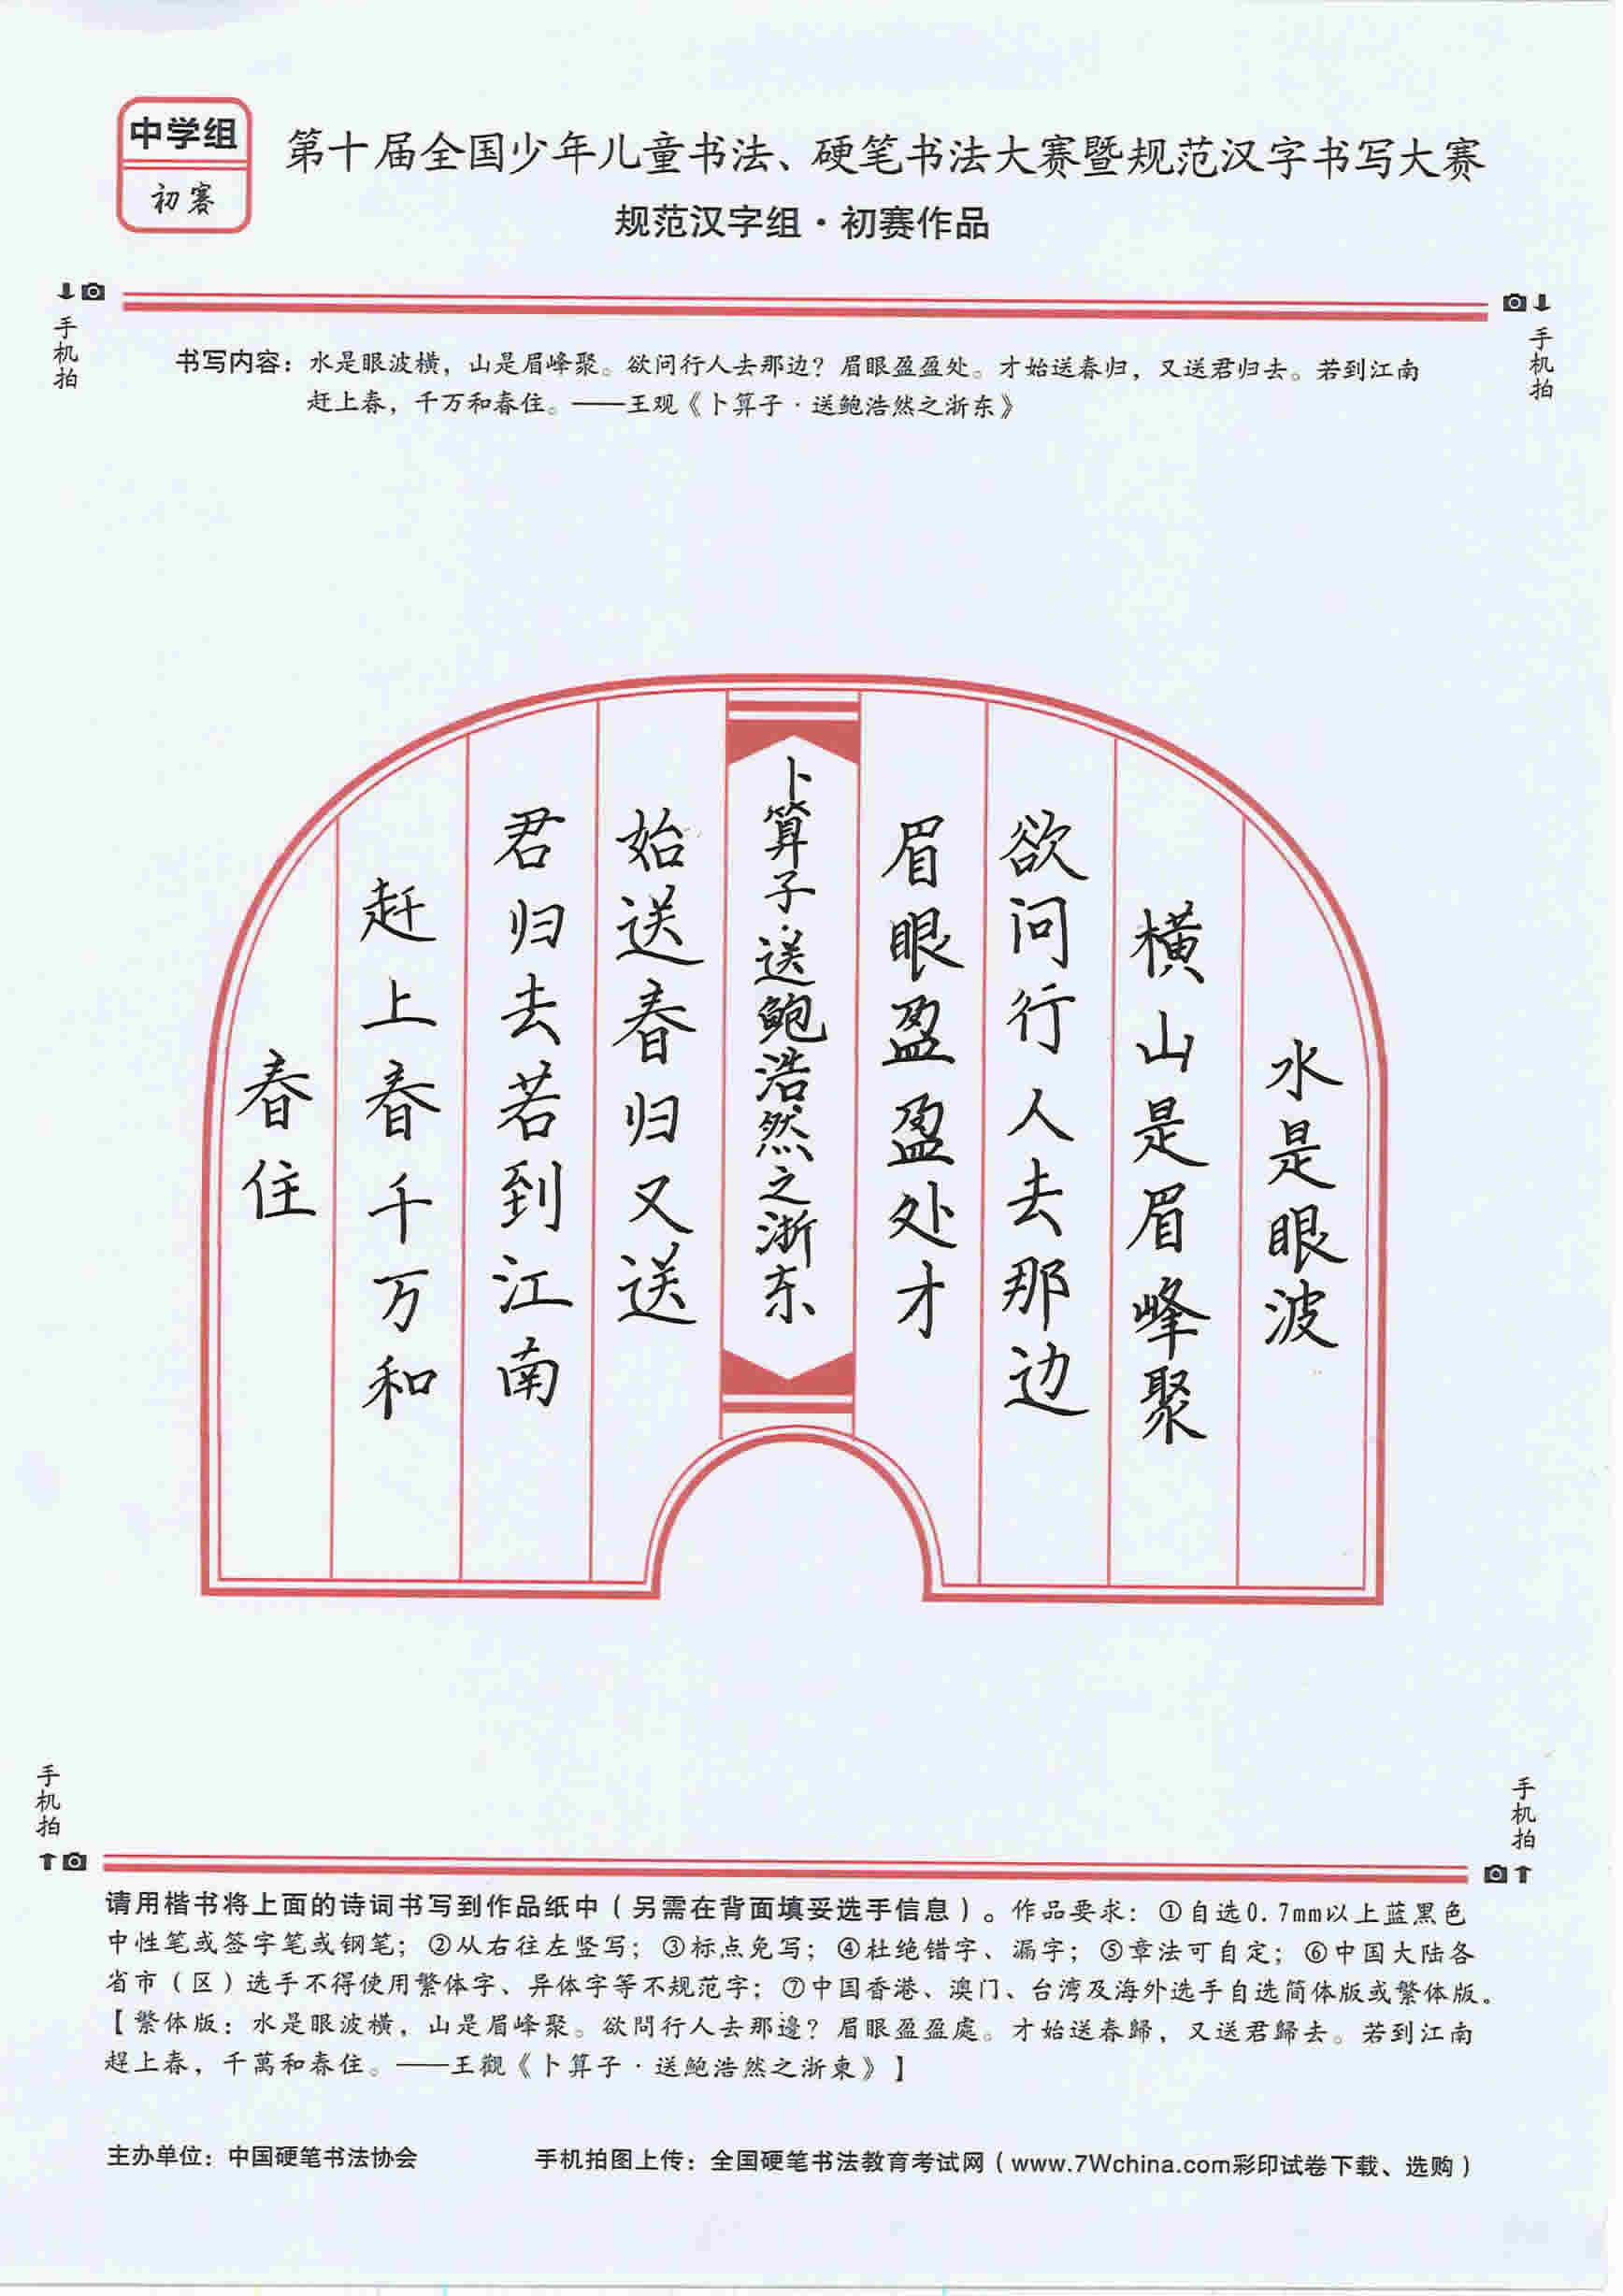 中学组
初赛
第十届全国少年儿童书法、硬笔书法大赛暨规范汉字书写大赛
规范汉字组·初赛作品
手机拍
手机拍
书写内容：水是眼波横，山是眉峰聚。欲问行人去那边？眉眼盈盈处。才始送春归，又送君归去。若到江南
赶上春，千万和春住。——王观《卜算子·送鲍浩然之浙东》
水是眼波
横山是眉峰聚
欲问行人去那边
眉眼盈盈处才
卜算子·送鲍浩然之浙东
始送春归又送
君归去若到江南
赶上春千万和
春住
手机拍
手机拍
请用楷书将上面的诗词书写到作品纸中（另需在背面填妥选手信息）。作品要求：①自选0.7mm以上蓝黑色
中性笔或签字笔或钢笔；②从右往左竖写；③标点免写；④杜绝错字、漏字；⑤章法可自定；⑥中国大陆各
省市（区）选手不得使用繁体字、异体字等不规范字；⑦中国香港、澳门、台湾及海外选手自选简体版或繁体版。
【繁体版：水是眼波橫，山是眉峰聚。欲問行人去那邊？眉眼盈盈處。才始送春歸，又送君歸去。若到江南
趕上春，千萬和春住。——王觀《卜算子·送鮑浩然之浙東》】
主办单位：中国硬笔书法协会
手机拍图上传：全国硬笔书法教育考试网（www.7Wchina.com彩印试卷下载、选购）